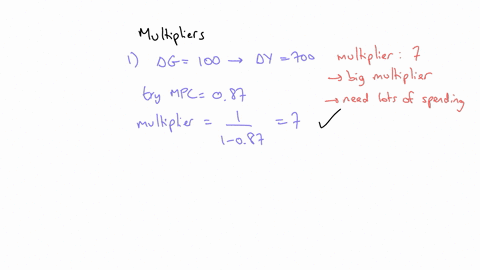 Multipliers
1) ΔG = 100 → ΔY = 700
multiplier : 7
→ big multiplier
→ need lots of spending
try MPC = 0.87
multiplier = 1/(1-0.87) = 7 ✓